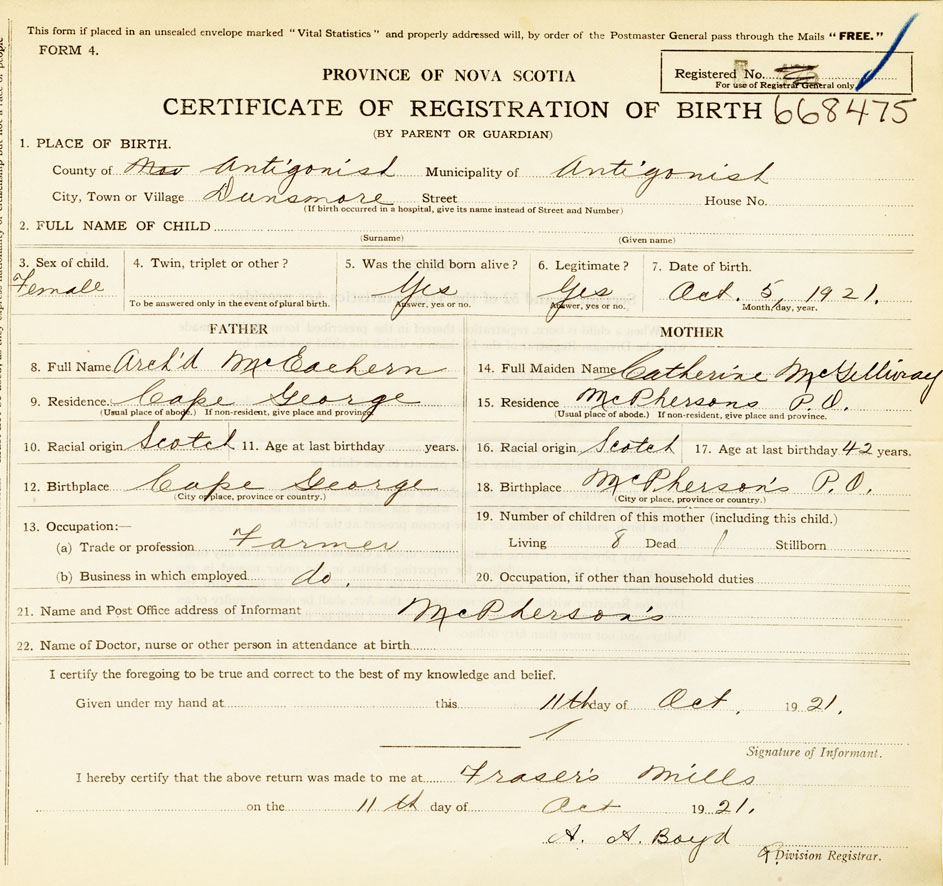 This form if placed in an unsealed envelope marked "Vital Statistics" and properly addressed will, by order of the Postmaster General pass through the Mails "FREE."
FORM 4.
Registered No.
For use of Registrar General only
PROVINCE OF NOVA SCOTIA
CERTIFICATE OF REGISTRATION OF BIRTH 668475
(BY PARENT OR GUARDIAN)
1. PLACE OF BIRTH.
County of Antigonish Municipality of Antigonish
City, Town or Village Dunsmore Street House No.
(If birth occurred in a hospital, give its name instead of Street and Number)
2. FULL NAME OF CHILD
(Surname) (Given name)
3. Sex of child. 4. Twin, triplet or other? 5. Was the child born alive? 6. Legitimate? 7. Date of birth.
Female Yes Yes Oct. 5, 1921.
To be answered only in the event of plural birth. Answer, yes or no. Answer, yes or no. Month, day, year.
FATHER MOTHER
8. Full Name Arch'd McEachern 14. Full Maiden Name Catherine McGillivray
9. Residence. Cape George 15. Residence McPhersons P.O.
(Usual place of abode.) If non-resident, give place and province. (Usual place of abode.) If non-resident, give place and province.
10. Racial origin Scotch 11. Age at last birthday years. 16. Racial origin Scotch 17. Age at last birthday 42 years.
12. Birthplace Cape George 18. Birthplace McPherson's P.O.
(City or place, province or country.) (City or place, province or country.)
13. Occupation:— 19. Number of children of this mother (including this child.)
(a) Trade or profession Farmer Living 8 Dead 1 Stillborn
(b) Business in which employed do. 20. Occupation, if other than household duties
21. Name and Post Office address of Informant McPherson's
22. Name of Doctor, nurse or other person in attendance at birth
I certify the foregoing to be true and correct to the best of my knowledge and belief.
Given under my hand at this 11th day of Oct. 1921.
Signature of Informant.
I hereby certify that the above return was made to me at Fraser's Mills
on the 11th day of Oct 1921.
A. A. Boyd
Division Registrar.